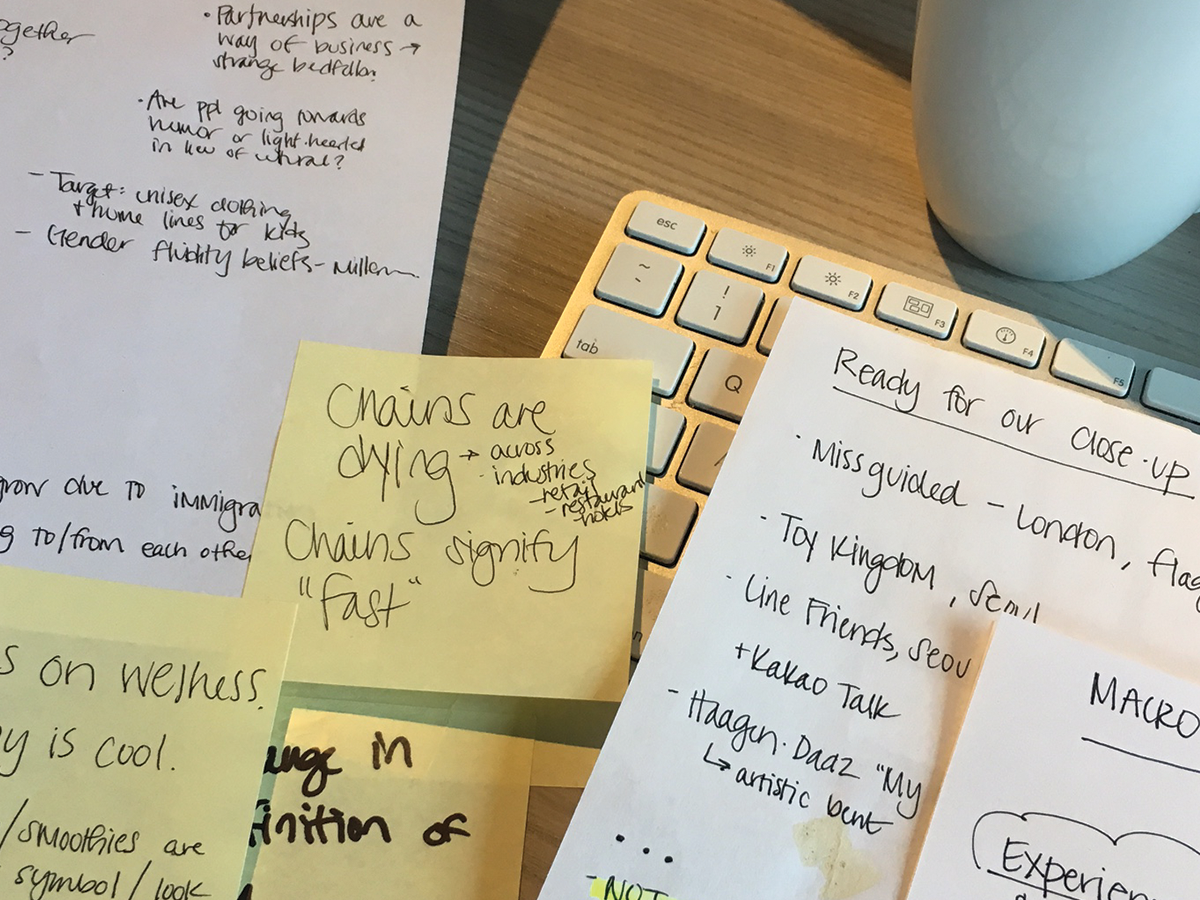 ogether
?
• Partnerships are a
way of business →
strange
• Are ppl going towards
humor or light-hearted
in lieu of
- Target: unisex clothing
+ home lines for kids
- Gender fluidity beliefs - Millenn
grow due to immigra
g to/from each other
Chains are
dying → across
- industries
- retail
- restaurant
- hotels
Chains signify
"fast"
s on wellness.
y is cool.
/smoothies are
symbol/look
ange in
finition of
esc
F1
F2
F3
F4
F5
~
!
1
tab
Q
Ready for our close-up
• Missguided - London, flag
- Toy Kingdom, Seoul
- Line Friends, Seou
+ Kakao Talk
- Haagen-Daaz "My
↳ artistic bent
...
- NOT
MACRO
Experien